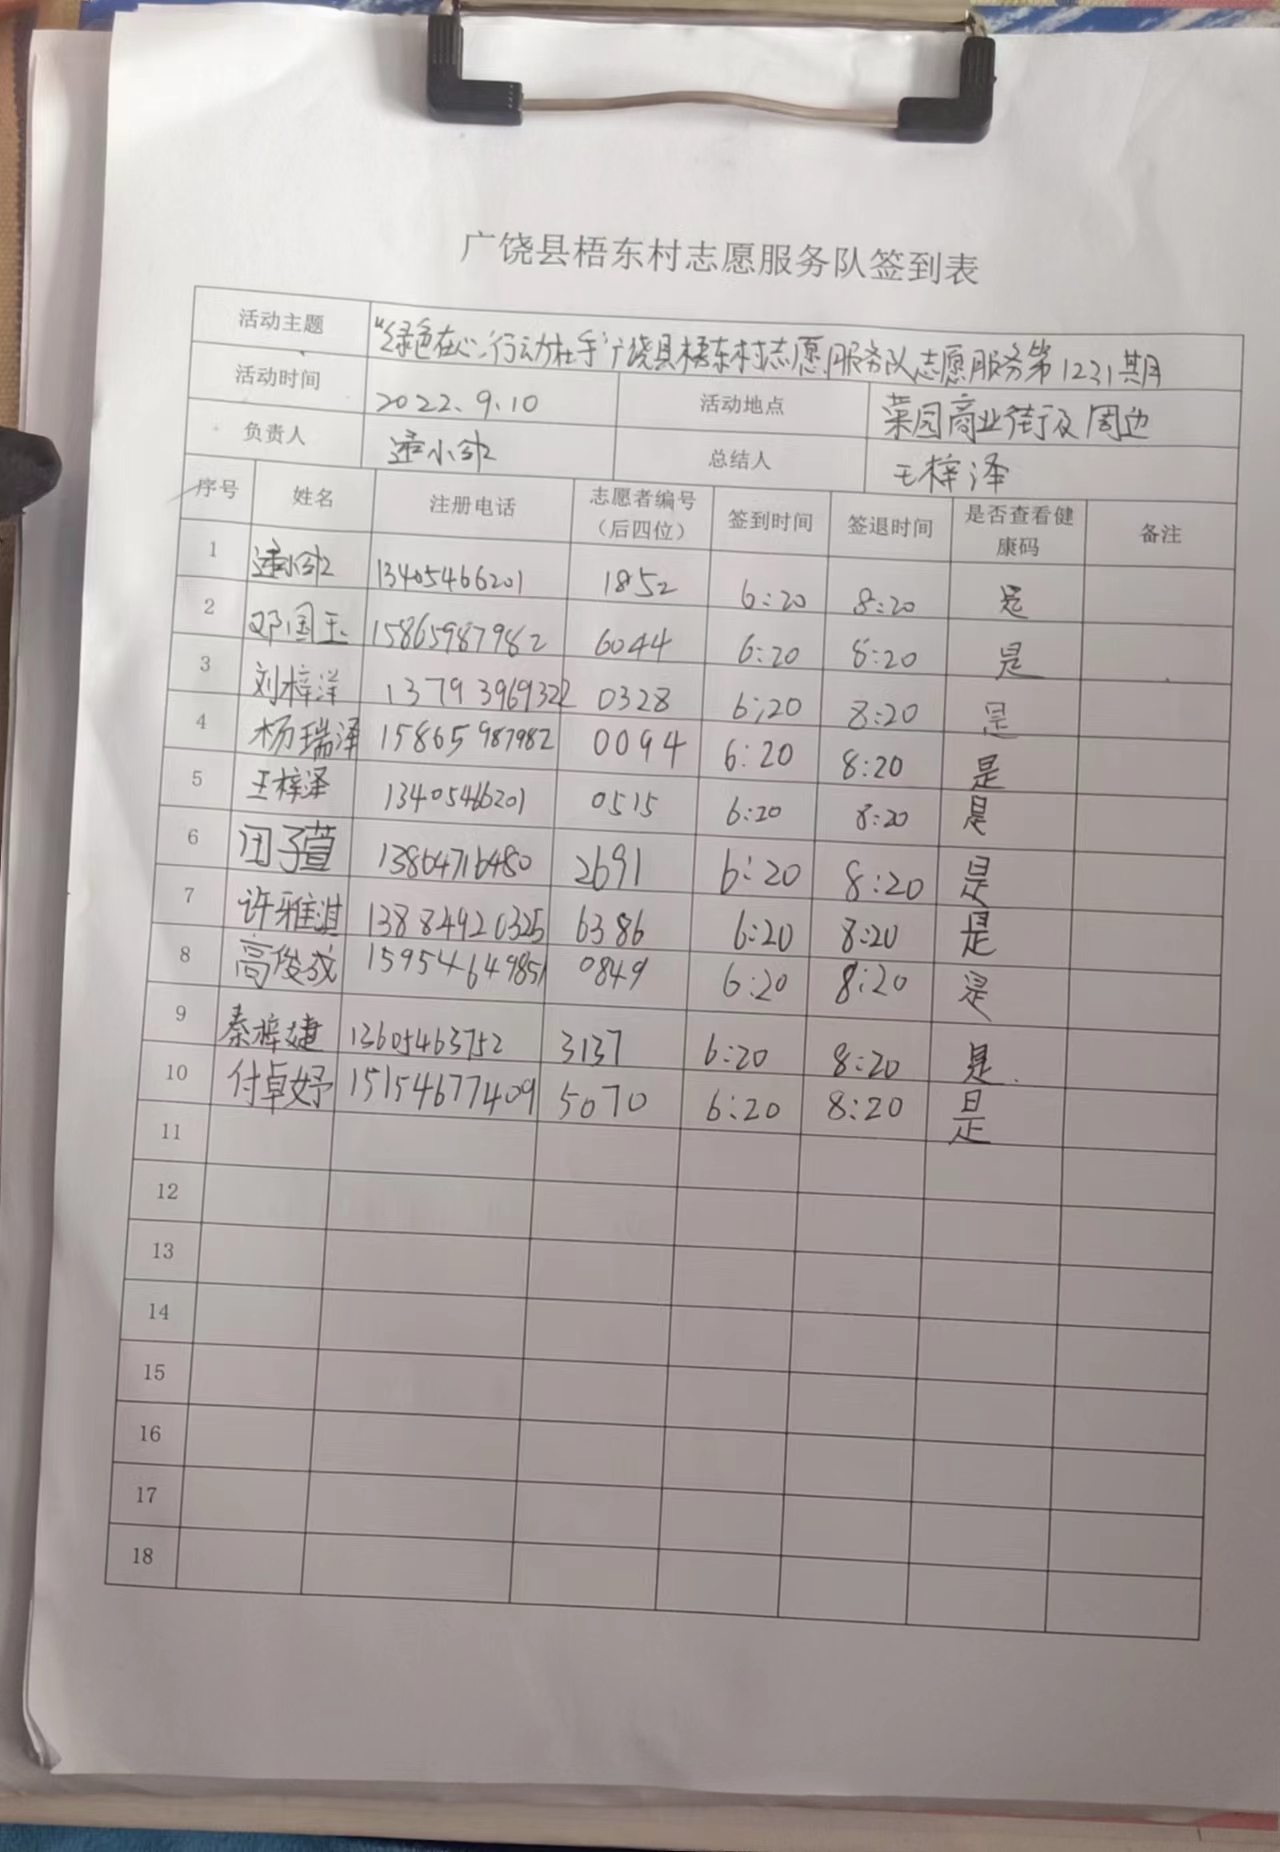 广饶县梧东村志愿服务队签到表
活动主题 "绿色在心,行动在手"广饶县梧东村志愿服务队志愿服务第1231期
活动时间 2022.9.10 活动地点 菜园商业街及周边
负责人 逯小 总结人 王梓泽
序号 姓名 注册电话 志愿者编号（后四位） 签到时间 签退时间 是否查看健康码 备注
1 逯小 13405466201 1852 6:20 8:20 是
2 邓国玉 15865987982 6044 6:20 8:20 是
3 刘梓洋 13793969322 0328 6:20 8:20 是
4 杨瑞泽 15865987982 0094 6:20 8:20 是
5 王梓泽 13405466201 0515 6:20 8:20 是
6 闭子萱 13864716480 2691 6:20 8:20 是
7 许雅淇 13884920325 6386 6:20 8:20 是
8 高俊成 15954649851 0849 6:20 8:20 是
9 秦梓婕 13605463752 3137 6:20 8:20 是
10 付卓妤 15154677409 5070 6:20 8:20 是
11
12
13
14
15
16
17
18